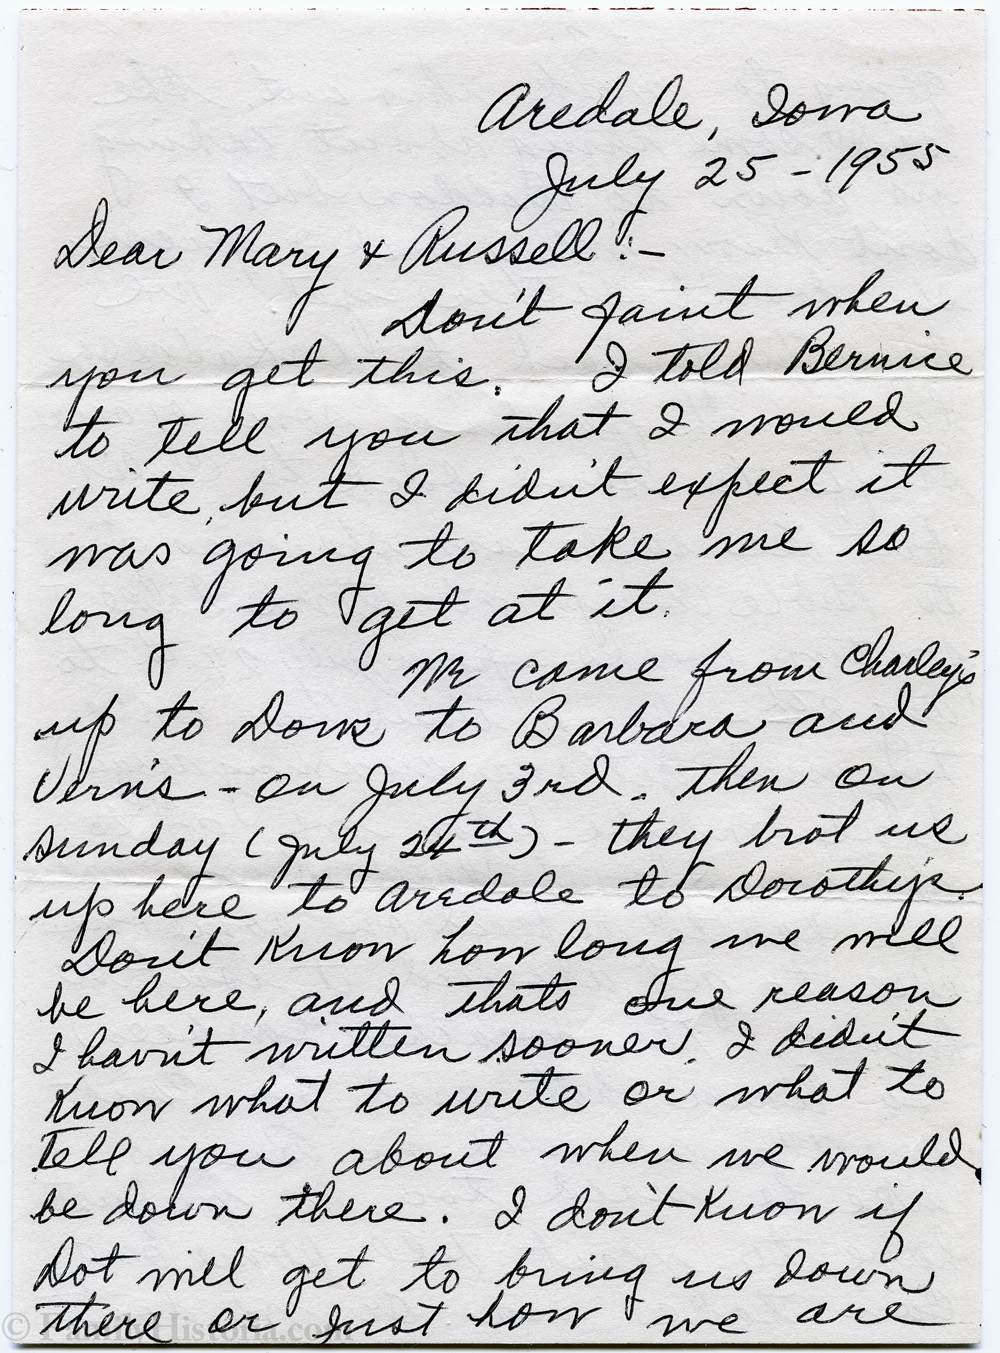 Aredale, Iowa
July 25 - 1955
Dear Mary & Russell:-
Don't faint when
you get this. I told Bernice
to tell you that I would
write, but I didn't expect it
was going to take me so
long to get at it.
We came from Charley's
up to Dows to Barbara and
Vern's - on July 3rd. Then on
Sunday (July 24th) - they brot us
up here to Aredale to Dorothy's.
Don't Know how long we will
be here, and thats one reason
I havn't written sooner. I didn't
Know what to write or what to
Tell you about when we would
be down there. I don't Know if
Dot will get to bring us down
there or Just how we are
© Family Historia.com